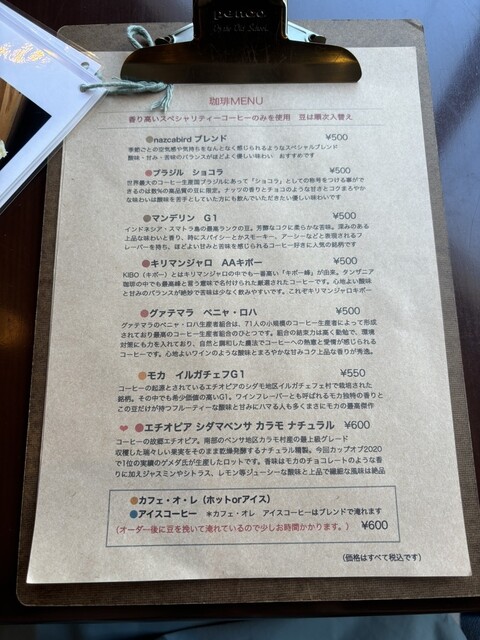 penco
珈琲MENU
香り高いスペシャリティーコーヒーのみを使用 豆は順次入替え
●nazcabird ブレンド ¥500
季節ごとの空気感や気持ちをなんとなく感じられるようなスペシャルブレンド
酸味・甘み・苦味のバランスがほどよく優しい味わい おすすめです
●ブラジル ショコラ ¥500
世界最大のコーヒー生産国ブラジルにあって「ショコラ」としての称号をつける事がで
きるのは数%の高品質の豆に限定。ナッツの香りとチョコのような甘さとコクまろやか
な味わいは酸味を苦手としていた方にも飲んでいただきたい優しい味わいです
●マンデリン G1 ¥500
インドネシア・スマトラ島の最高ランクの豆。芳醇なコクに柔らかな苦味。深みのある
上品な味わいと香り、時にスパイシーとかスモーキー、アーシーなどと表現されるフ
レーバーを持ち、ほどよい甘みと苦味を感じられるコーヒー好きに人気の銘柄です
●キリマンジャロ AAキボー ¥500
KIBO（キボー）とはキリマンジャロの中でも一番高い「キボー峰」が由来。タンザニア
珈琲の中でも最高峰と言う意味で名付けられた厳選されたコーヒーです。心地よい酸味
と甘みのバランスが絶妙で苦味は少なく飲みやすいです。これぞキリマンジャロキボー
●グァテマラ ペニャ・ロハ ¥500
グァテマラのペニャ・ロハ生産者組合は、71人の小規模のコーヒー生産者によって形成
されており最高のコーヒー生産者組合のひとつです。組合の結束力は高く勤勉で、環境
対策にも力を入れており、自然と調和した農法でコーヒーへの熱意と愛情が感じられる
コーヒーです。心地よいワインのような酸味とまろやかな甘みコク上品な香りが秀逸。
●モカ イルガチェフG1 ¥550
コーヒーの起源とされているエチオピアのシダモ地区イルガチェフェ村で栽培された
銘柄。その中でも希少価値の高いG1。ワインフレーバーとも呼ばれるモカ独特の香りと
この豆だけが持つフルーティーな酸味と甘みにハマる人も多くまさにモカの最高傑作
❤ ●エチオピア シダマベンサ カラモ ナチュラル ¥600
コーヒーの故郷エチオピア。南部のベンサ地区カラモ村産の最上級グレード
収穫した瑞々しい果実をそのまま乾燥発酵するナチュラル精製。今回カップオブ2020
で1位の実績のゲメダ氏が生産したロットです。香味はモカのチョコレートのような香
りに加えジャスミンやシトラス、レモン等ジューシーな酸味と上品で繊細な風味は絶品
●カフェ・オ・レ（ホットorアイス）
●アイスコーヒー ＊カフェ・オレ アイスコーヒーはブレンドで淹れます
（オーダー後に豆を挽いて淹れているので少しお時間かかります。） ¥600
（価格はすべて税込です）